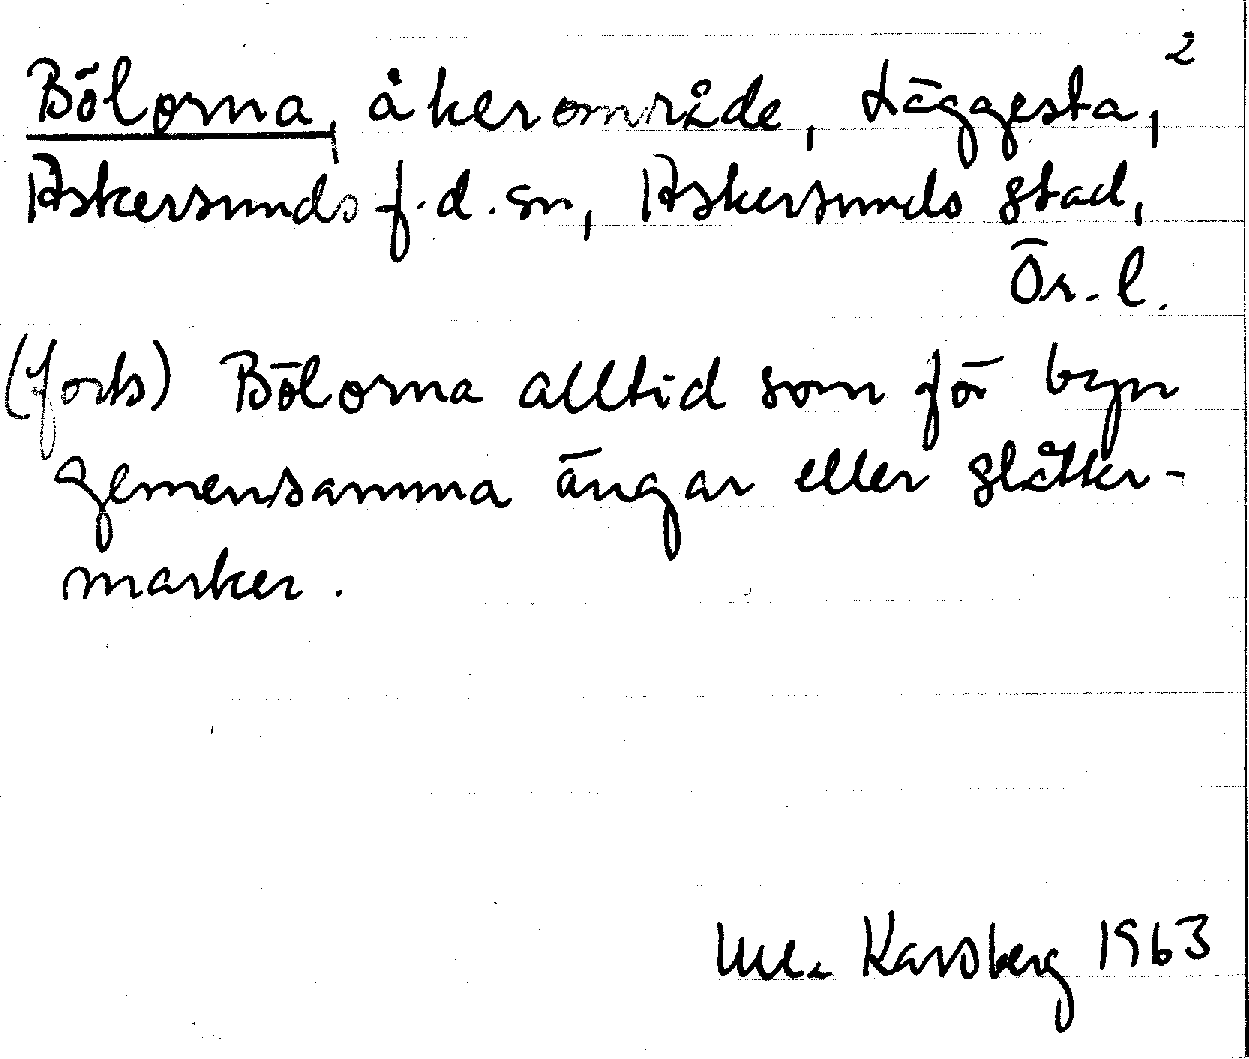 2
Bölorna, åkerområde, Läggesta,
Askersunds f.d. sn, Askersunds stad,
Ör. l.
(forts) Bölorna alltid som för byn
gemensamma ängar eller slåtter-
marker.
Karsberg 1963